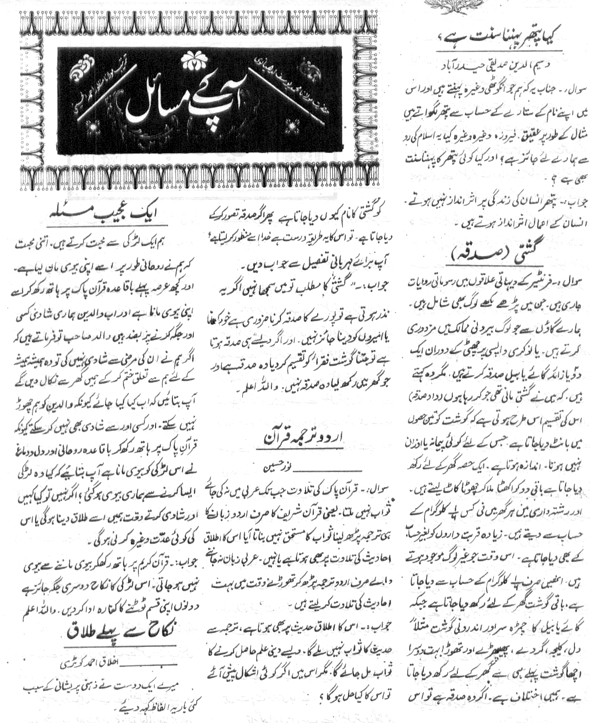 آپ کے مسائل
کیا پتھر پہننا سنت ہے؟
وسیم الدین صدیقی حیدرآباد
سوال:۔ جناب یہ کہ ہم جو انگوٹھی وغیرہ پہنتے ہیں اور اس
میں اپنے نام کے ستارے کے حساب سے پتھر لگواتے ہیں
مثال کے طور پر عقیق، فیروزہ وغیرہ وغیرہ کیا یہ اسلام کی رو
سے ہمارے لئے جائز ہے؟ اور کیا کوئی پتھر کا پہننا سنت
بھی ہے؟
جواب:۔ پتھر انسان کی زندگی پر اثر انداز نہیں ہوتے۔
انسان کے اعمال اثر انداز ہوتے ہیں۔
گشتی (صدقہ)
سوال:۔ فرنٹیئر کے دیہاتی علاقوں میں رسوماتی روایات
جاری ہیں۔ جن میں پڑھے لکھے لوگ بھی شامل ہیں۔
ہمارے گاؤں سے جو لوگ بیرونی ممالک میں مزدوری
کرتے ہیں۔ یا نوکری واپسی پر چھٹی کے دوران ایک
دو یا زائد گائے یا بیل صدقہ کرتے ہیں۔ مگر وہ کہتے
ہیں، کہ میں نے گشتی مانی تھی جو کر رہا ہوں دوا و صدقہ)
کی تقسیم اس طرح ہوتی ہے کہ گوشت کو تین حصوں
میں بانٹ دیا جاتا ہے جس کے لئے کوئی پیمانہ یا وزن
نہیں ہوتا۔ اندازہ ہوتا ہے۔ ایک حصہ گھر کے لئے رکھ
دیا جاتا ہے باقی دو کو اکٹھا ملا کر چھوٹا کاٹ لیتے ہیں۔
اور رشتہ داری میں ہر گھر میں نی کس پلے کلوگرام کے
حساب سے دیتے ہیں۔ زیادہ قربت داروں کو بغیر حساب
کے بھی دیا جاتا ہے۔ اس وقت جو غیر لوگ موجود ہوتے
ہیں۔ انھیں صرف پلے کلوگرام کے حساب سے دیا جاتا
ہے۔ باقی گوشت گھر کے لئے رکھ دیا جاتا ہے جبکہ
گائے یا بیل کا چمڑہ سر اور اندرونی گوشت مثلاً
دل، کلیجہ، گردے، پھیپھڑے اور تھوڑا بہت دوسرا
اچھا گوشت پہلے ہی سے گھر کے لئے رکھ دیا جاتا
ہے۔ ہمیں اختلاف ہے۔ اگر وہ صدقہ ہے تو اس
کو گشتی کا نام کیوں دیا جاتا ہے پھر اگر صدقہ تصور کر کے
دیا جاتا ہے۔ تو اس کا یہ طریق درست ہے خدا اسے منظور کر لیتا ہے؟
آپ برائے مہربانی تفصیل سے جواب دیں۔
جواب:۔ "گشتی" کا مطلب تو میں سمجھا نہیں اگر یہ
نذر ہوتی ہے تو پورے کا صدقہ کرنا ضروری ہے خود کھانا
یا امیروں کو دینا جائز نہیں۔ اور اگر ویسے ہی صدقہ ہوتا
ہے تو جتنا گوشت فقرا کو تقسیم کر دیا وہ صدقہ ہے اور
جو گھر میں رکھ لیا وہ صدقہ نہیں۔ واللہ اعلم۔
اردو ترجمۂ قرآن
نور حسین
سوال:۔ قرآن پاک کی تلاوت جب تک عربی میں نہ کی جائے
ثواب نہیں ملتا۔ یعنی قرآن شریف کا صرف اردو زبان کا
ہی ترجمہ پڑھ لینا ثواب کا مستحق نہیں بناتا کیا اس کا اطلاق
احادیث کی تلاوت پر بھی ہوتا ہے یا نہیں۔ عربی زبان نہ جاننے
والے صرف اردو ترجمہ پڑھ کر تھوڑے وقت میں بہت
احادیث کی تلاوت کر لیتے ہیں۔
جواب:۔ اس کا اطلاق حدیث پر بھی ہوتا ہے، ترجمہ سے
حدیث کا ثواب نہیں ملے گا۔ ویسے دینی علم حاصل کرنے کا
ثواب مل جائے گا، مگر اس میں اگر کوئی اشکال پیش آئے
تو اس کا کیا حل ہو گا؟
ایک عجیب مسئلہ
ہم ایک لڑکی سے محبت کرتے ہیں۔ اتنی محبت
کہ ہم نے روحانی طور پر اسے اپنی بیوی مان لیا ہے۔
اور کچھ عرصہ پہلے باقاعدہ قرآن پاک پر ہاتھ رکھ کر اسے
اپنی بیوی مانا ہے اور اب والدین ہماری شادی کسی
اور جگہ کرنے پر بضد ہیں والد صاحب تو فرماتے ہیں کہ
اگر ہم نے ان کی مرضی سے شادی نہیں کی تو وہ ہمیشہ ہمیشہ
کے لئے ہم سے تعلق ختم کر کے ہمیں گھر سے نکال دیں گے
آپ بتائیں کہ اب کیا کیا جائے کیونکہ والدین کو ہم چھوڑ
نہیں سکتے۔ اور کسی اور سے شادی بھی نہیں کر سکتے کیونکہ
قرآن پاک پر ہاتھ رکھ کر باقاعدہ روحانی اور دل و دماغ
نے اس لڑکی کو بیوی مانا ہے آپ بتائیے کہ کیا وہ لڑکی
ایسا کرنے سے ہماری بیوی ہو گئی؟ اگر نہیں تو کیا کہیں
اور شادی کرتے وقت ہمیں اسے طلاق دینا ہو گی یا اس
کی کوئی عدت وغیرہ کرنی ہو گی۔
جواب:۔ قرآن کریم پر ہاتھ رکھ کر بیوی ماننے سے بیوی
نہیں ہو جاتی۔ اس لڑکی کا نکاح دوسری جگہ جائز ہے
دونوں اپنی قسم توڑنے کا کفارہ ادا کر دیں۔ واللہ اعلم
نکاح سے پہلے طلاق
اخلاق احمد کوہڑی
میرے ایک دوست نے ذہنی پریشانی کے سبب
کئی بار یہ الفاظ کہہ دیئے۔